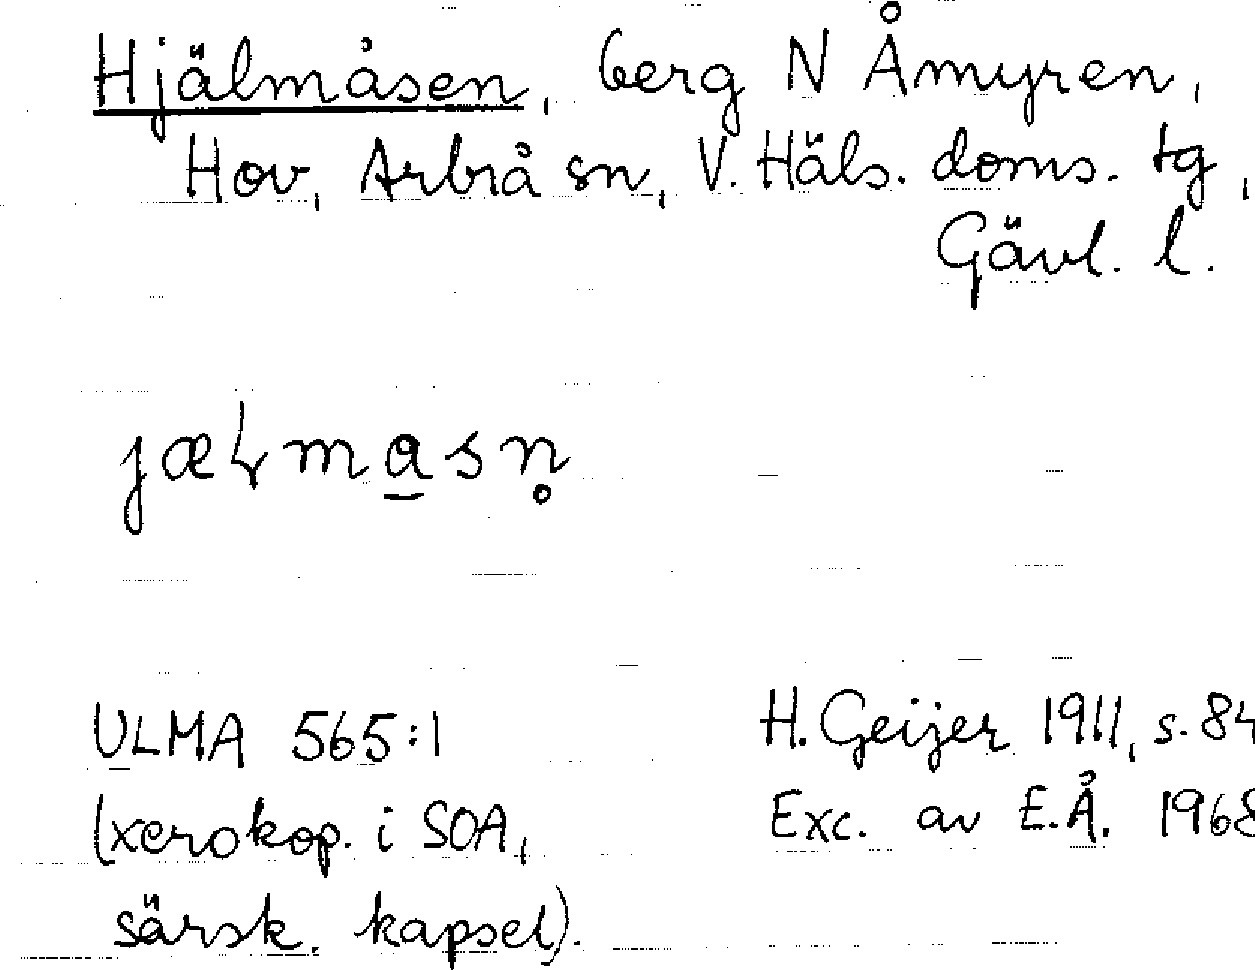 Hjälmåsen, berg N Åmyren,
Hov, Arbrå sn, V. Häls. doms. tg,
Gävl. l.
jæɽma̲sn̥
ULMA 565:1 H. Geijer 1911, s. 84
(xerokop. i SOA, Exc. av E.Å. 1968
särsk. kapsel).